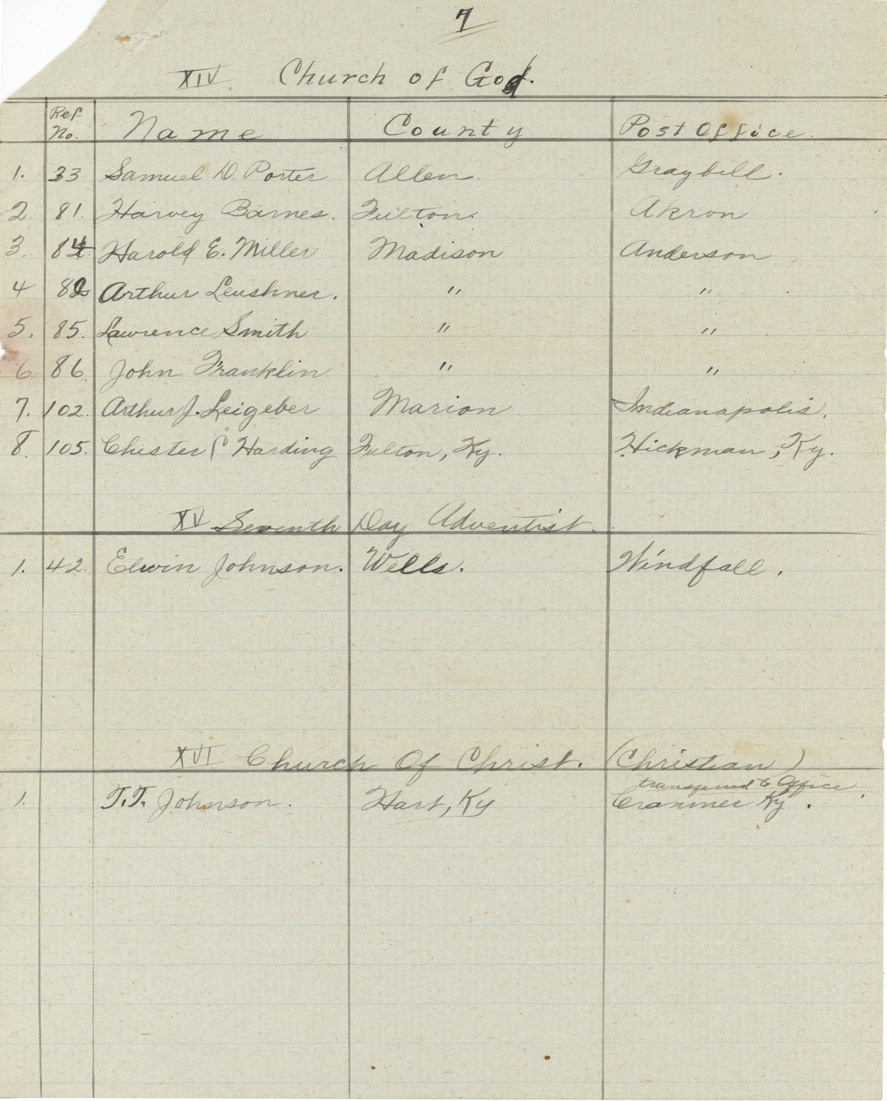 7
XIV Church of God.
Ref. No. Name County Post Office.
1. 33 Samuel D. Porter Allen. Graybill.
2 81. Harvey Barnes. Fulton. Akron
3. 84 Harold E. Miller Madison Anderson
4 82 Arthur Leushner. " "
5. 85. Lawrence Smith " "
6 86 John Franklin " "
7. 102. Arthur J. Leigeber Marion Indianapolis.
8. 105. Chester Harding Fulton, Ky. Hickman, Ky.
XV Seventh Day Adventist.
1. 42. Elwin Johnson. Wells. Windfall.
XVI Church Of Christ. (Christian)
transferred to Office.
1. T.T. Johnson. Hart, Ky Ky.